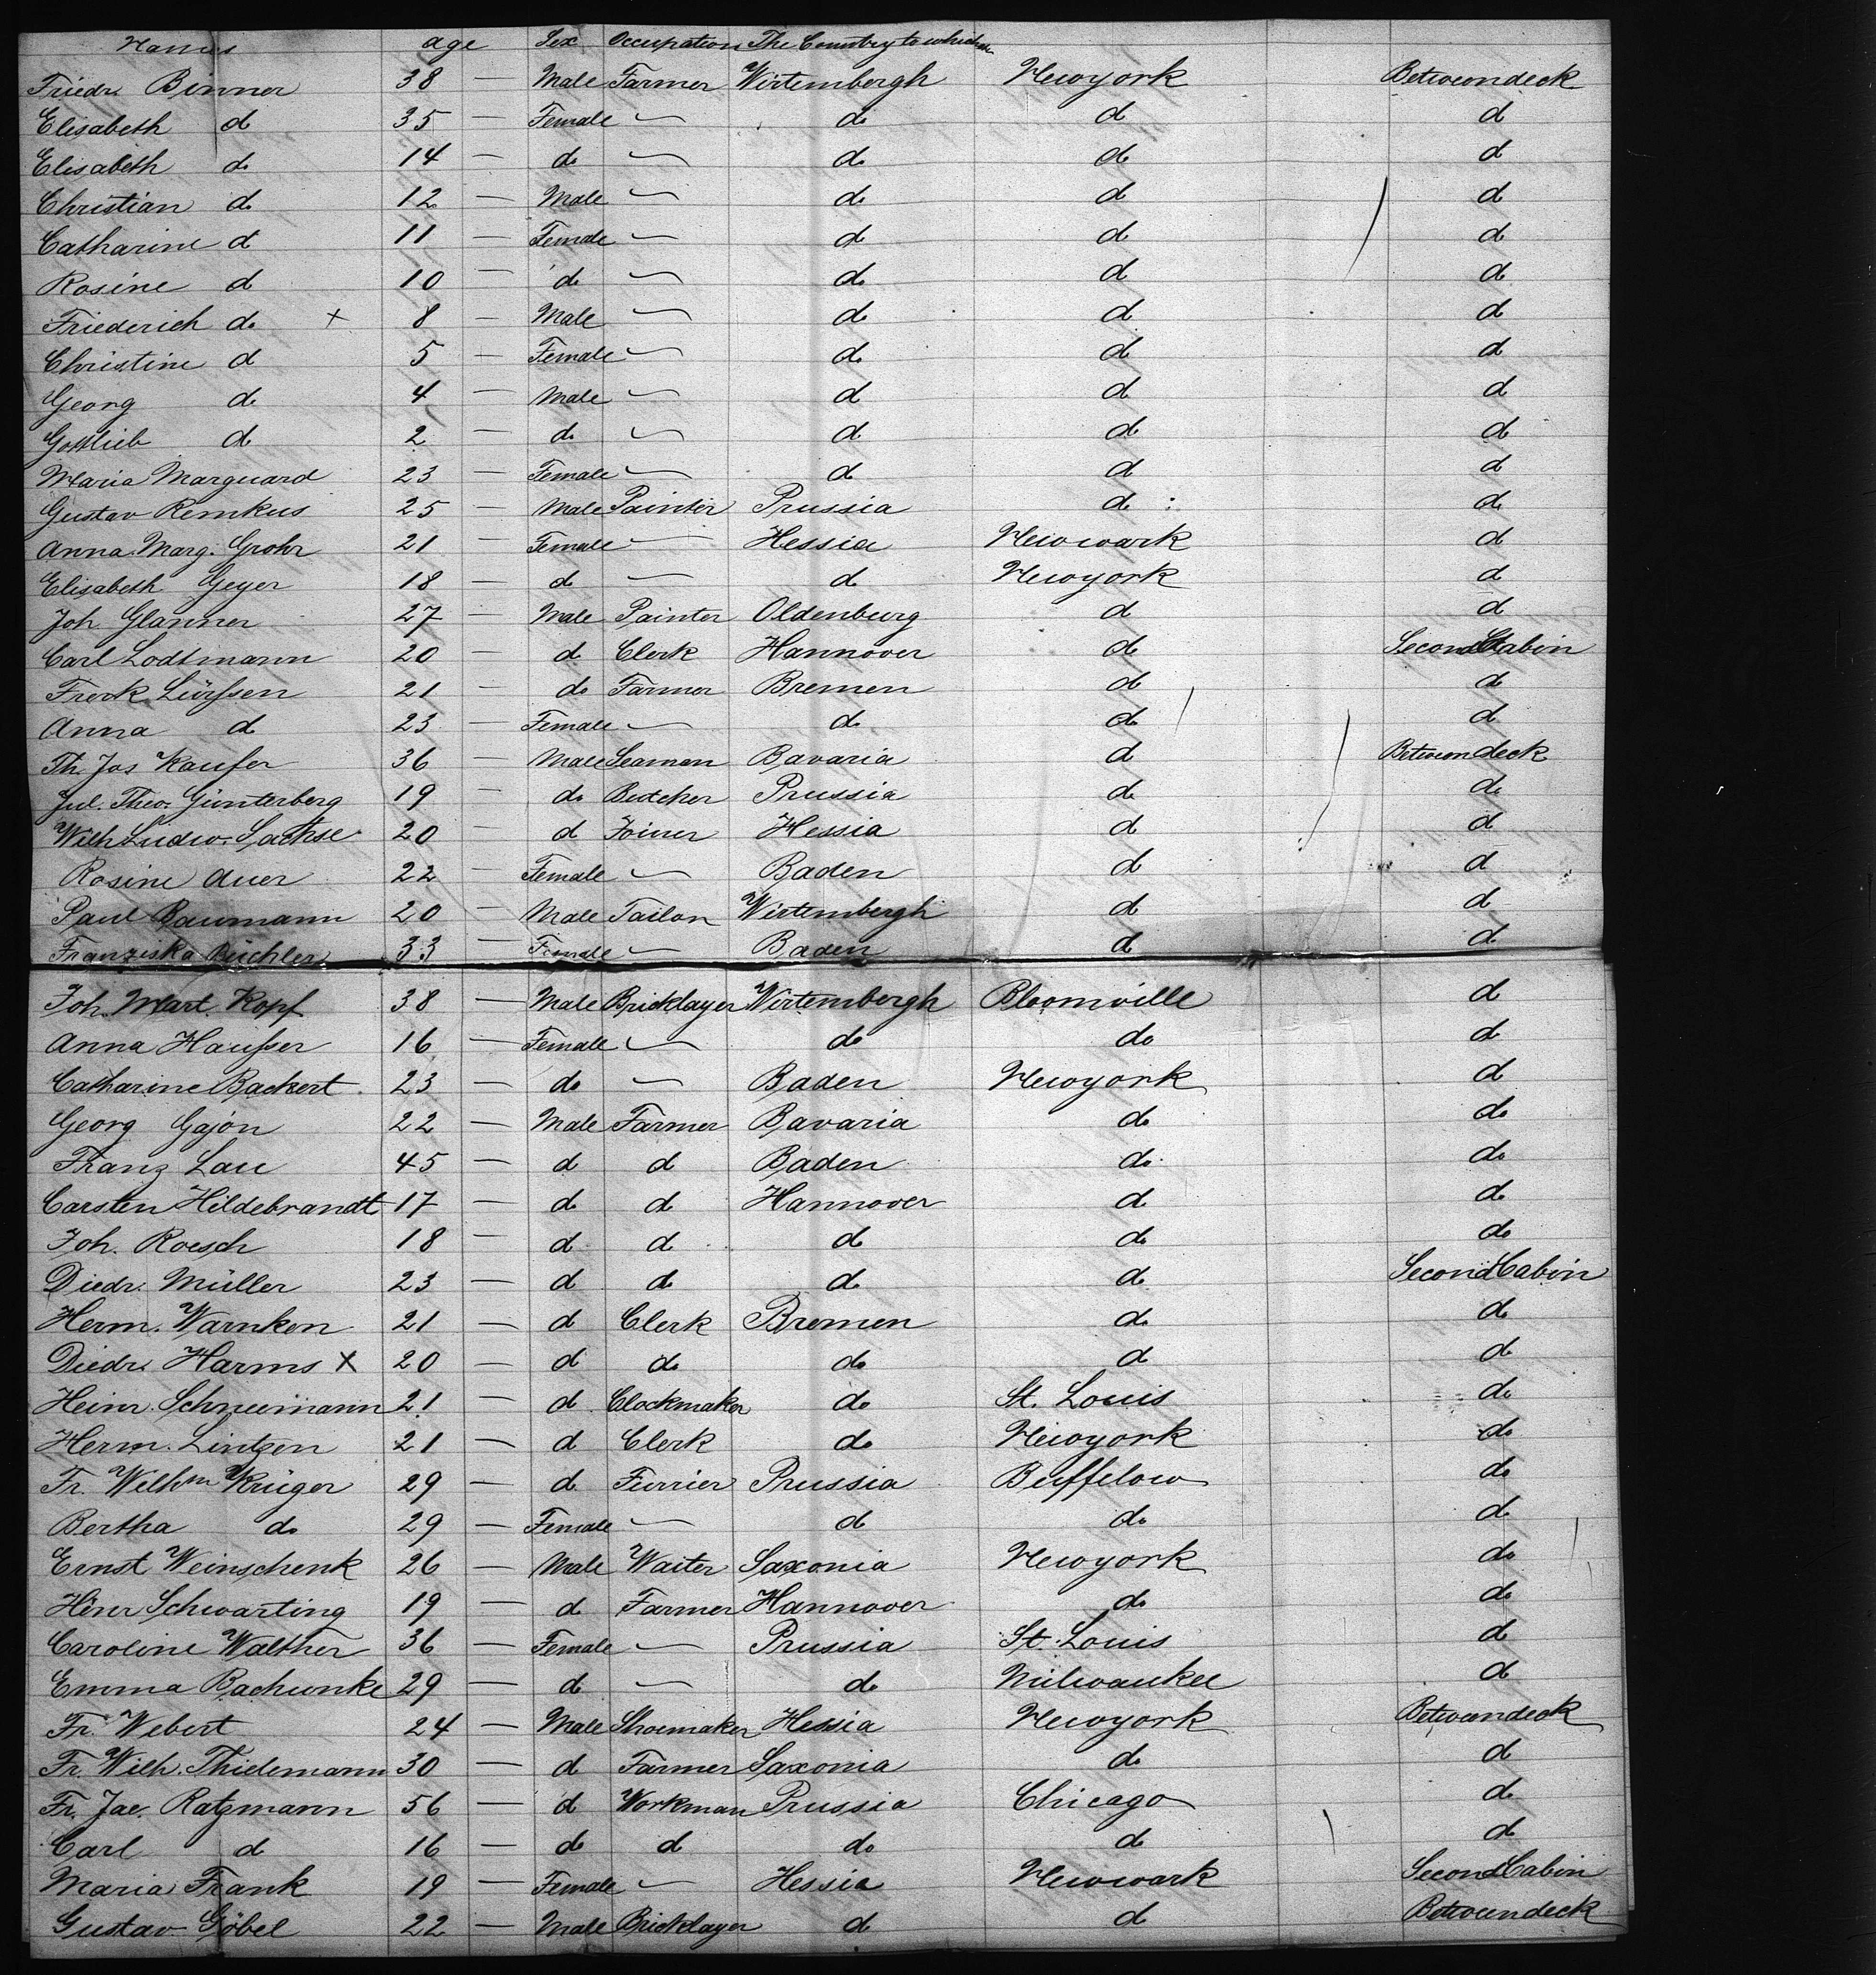 Names age Sex Occupation The Country to which
Friedr. Binner 38 — Male Farmer Wirtembergh Newyork Betweendeck
Elisabeth d 35 — Female — do d d
Elisabeth do 14 — do — do do d
Christian do 12 — Male — do d d
Catharine d 11 — Female — do d do
Rosine d 10 — do — do d do
Friederich do x 8 — Male — do d do
Christine d 5 — Female — do d d
Georg do 4 — Male — d d do
Gottlieb d 2 — do — d d d
Maria Marquard 23 — Female — d d d
Gustav Remkus 25 — Male Painter Prussia do : do
Anna Marg. Grohr 21 — Female — Hessia Newwark d
Elisabeth Geyer 18 — d — d Newyork d
Joh Glanner 27 — Male Painter Oldenburg d d
Carl Lodtmann 20 — d Clerk Hannover do Second Cabin
Frerk Lürssen 21 — do Farmer Bremen d d
Anna d 23 — Female — do do d
Th. Jos Kaufer 36 — Male Seaman Bavaria d Betweendeck
Jul. Theo. Günterberg 19 — do Butcher Prussia do do
Wilh Ludw. Sachse 20 — d Joiner Hessia d d
Rosine Auer 22 — Female — Baden d d
Paul Baumann 20 — Male Tailor Wirtembergh d d
Franziska Büchler 33 — Female — Baden d d
Joh. Mart. Kopf 38 — Male Bricklayer Wirtembergh Bloomville d
Anna Hausser 16 — Female — do do d
Catharine Backert 23 — do — Baden Newyork d
Georg Gajon 22 — Male Farmer Bavaria do do
Franz Lau 45 — d d Baden do do
Carsten Hildebrandt 17 — d d Hannover d do
Joh. Roesch 18 — d d d do do
Diedr. Müller 23 — d d d do Second Cabin
Herm. Warnken 21 — d Clerk Bremen do do
Diedr. Harms x 20 — d do do d do
Heinr. Schneemann 21 — d Clockmaker do St. Louis do
Herm. Lintzen 21 — d Clerk do Newyork do
Fr. Wilhm Krüger 29 — d Furrier Prussia Buffelow do
Bertha do 29 — Female — d do d
Ernst Weinschenk 26 — Male Waiter Saxonia Newyork do
Hinr Schwarting 19 — d Farmer Hannover do do
Caroline Walther 36 — Female — Prussia St. Louis d
Emma Bachunke 29 — d — do Milwaukee d
Fr. Webert 24 — Male Shoemaker Hessia Newyork Betweendeck
Fr. Wilh. Thielemann 30 — d Farmer Saxonia do d
Fr. Jac. Ratzmann 56 — d Workman Prussia Chicago do
Carl d 16 — do d do d d
Maria Frank 19 — Female — Hessia Newwark Second Cabin
Gustav Göbel 22 — Male Bricklayer d d Betweendeck